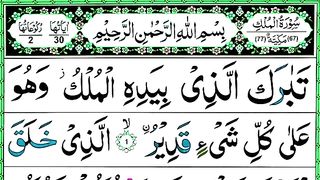 سُوْرَةُ الْمُلْكِ
مَكِّيَّةٌ (77) (67)
بِسْمِ اللّٰهِ الرَّحْمٰنِ الرَّحِيْمِ
اٰيَاتُهَا 30
رُكُوْعَاتُهَا 2
تَبٰرَكَ الَّذِىْ بِيَدِهِ الْمُلْكُ ۫ وَهُوَ
عَلٰى كُلِّ شَىْءٍ قَدِيْرُ ۙ﴿۱﴾ اۨلَّذِىْ خَلَقَ